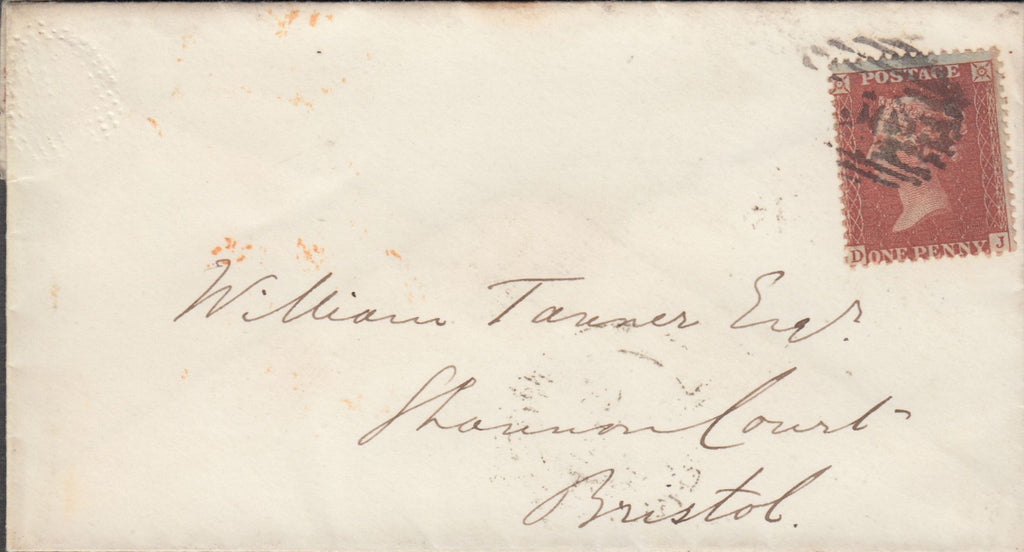 POSTAGE
D ONE PENNY J
William Tanner Esqr.
Shannon Court
Bristol.